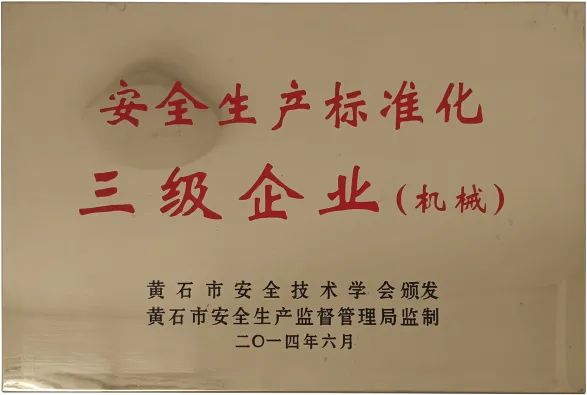 安全生产标准化
三级企业(机械)
黄石市安全技术学会颁发
黄石市安全生产监督管理局监制
二〇一四年六月